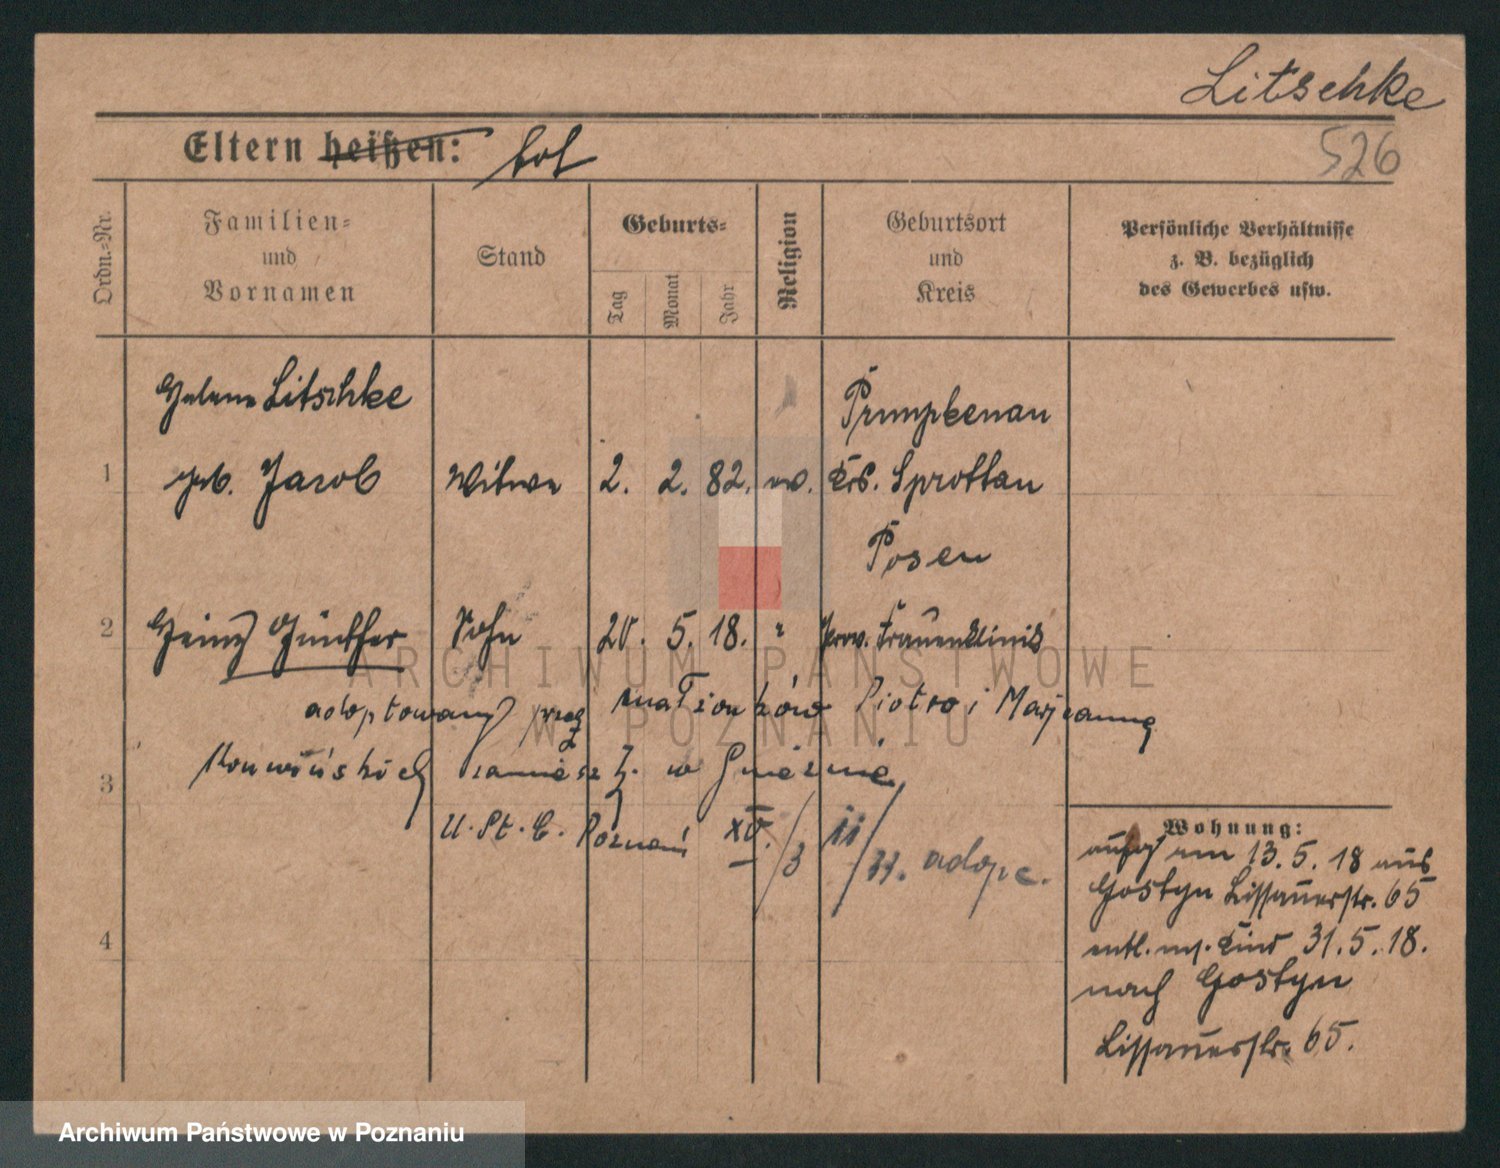 Litschke
526
Eltern heißen: tot
Ordn.-Nr.
Familien-
und
Vornamen
Stand
Geburts-
Tag
Monat
Jahr
Religion
Geburtsort
und
Kreis
Persönliche Verhältnisse
z. B. bezüglich
des Gewerbes usw.
Helene Litschke
Primpkenau
1 geb. Jacob Witwe 2. 2. 82. ev. Krs. Sprottau
Posen
2 Heinz Günther Sohn 20. 5. 18. " Prov. Frauenklinik
adoptowany przez małżonków Piotra i Marjannę
3 zamieszk. w Gnieźnie
U. St. C. Poznań XV. / 3 ii / 33. adopc.
4
Wohnung:
aufg. am 13. 5. 18 aus
Gostyn Lissauerstr. 65
entl. m. Kind 31. 5. 18.
nach Gostyn
Lissauerstr. 65.
ARCHIWUM PAŃSTWOWE
W POZNANIU
Archiwum Państwowe w Poznaniu